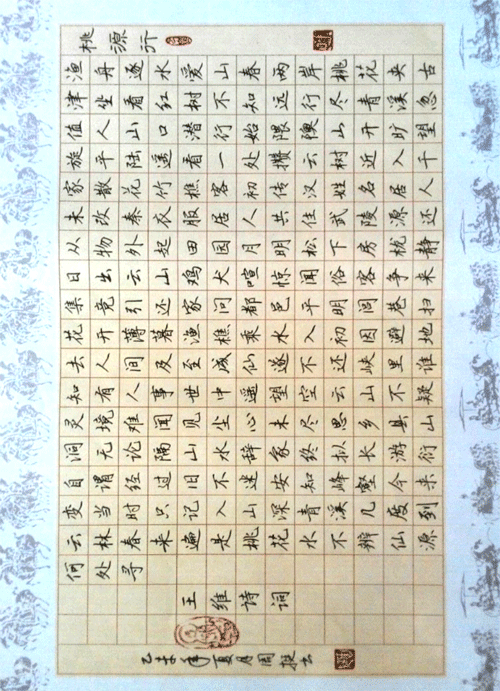 桃源行
渔舟逐水爱山春两岸桃花夹古
津坐看红树不知远行尽青溪忽
值人山口潜行始隈隩山开旷望
旋平陆遥看一处攒云树近入千
家散花竹樵客初传汉姓名居人
未改秦衣服居人共住武陵源还
从物外起田园月明松下房栊静
日出云山鸡犬喧惊闻俗客争来
集竞引还家问都邑平明闾巷扫
花开薄暮渔樵乘水入初因避地
去人间及至成仙遂不还峡里谁
知有人事世中遥望空云山不疑
灵境难闻见尘心未尽思乡县出
洞无论隔山水辞家终拟长游衍
自谓经过旧不迷安知峰壑今来
变当时只记入山深青溪几度到
云林春来遍是桃花水不辨仙源
何处寻
王维诗词
乙未年夏月周挺书